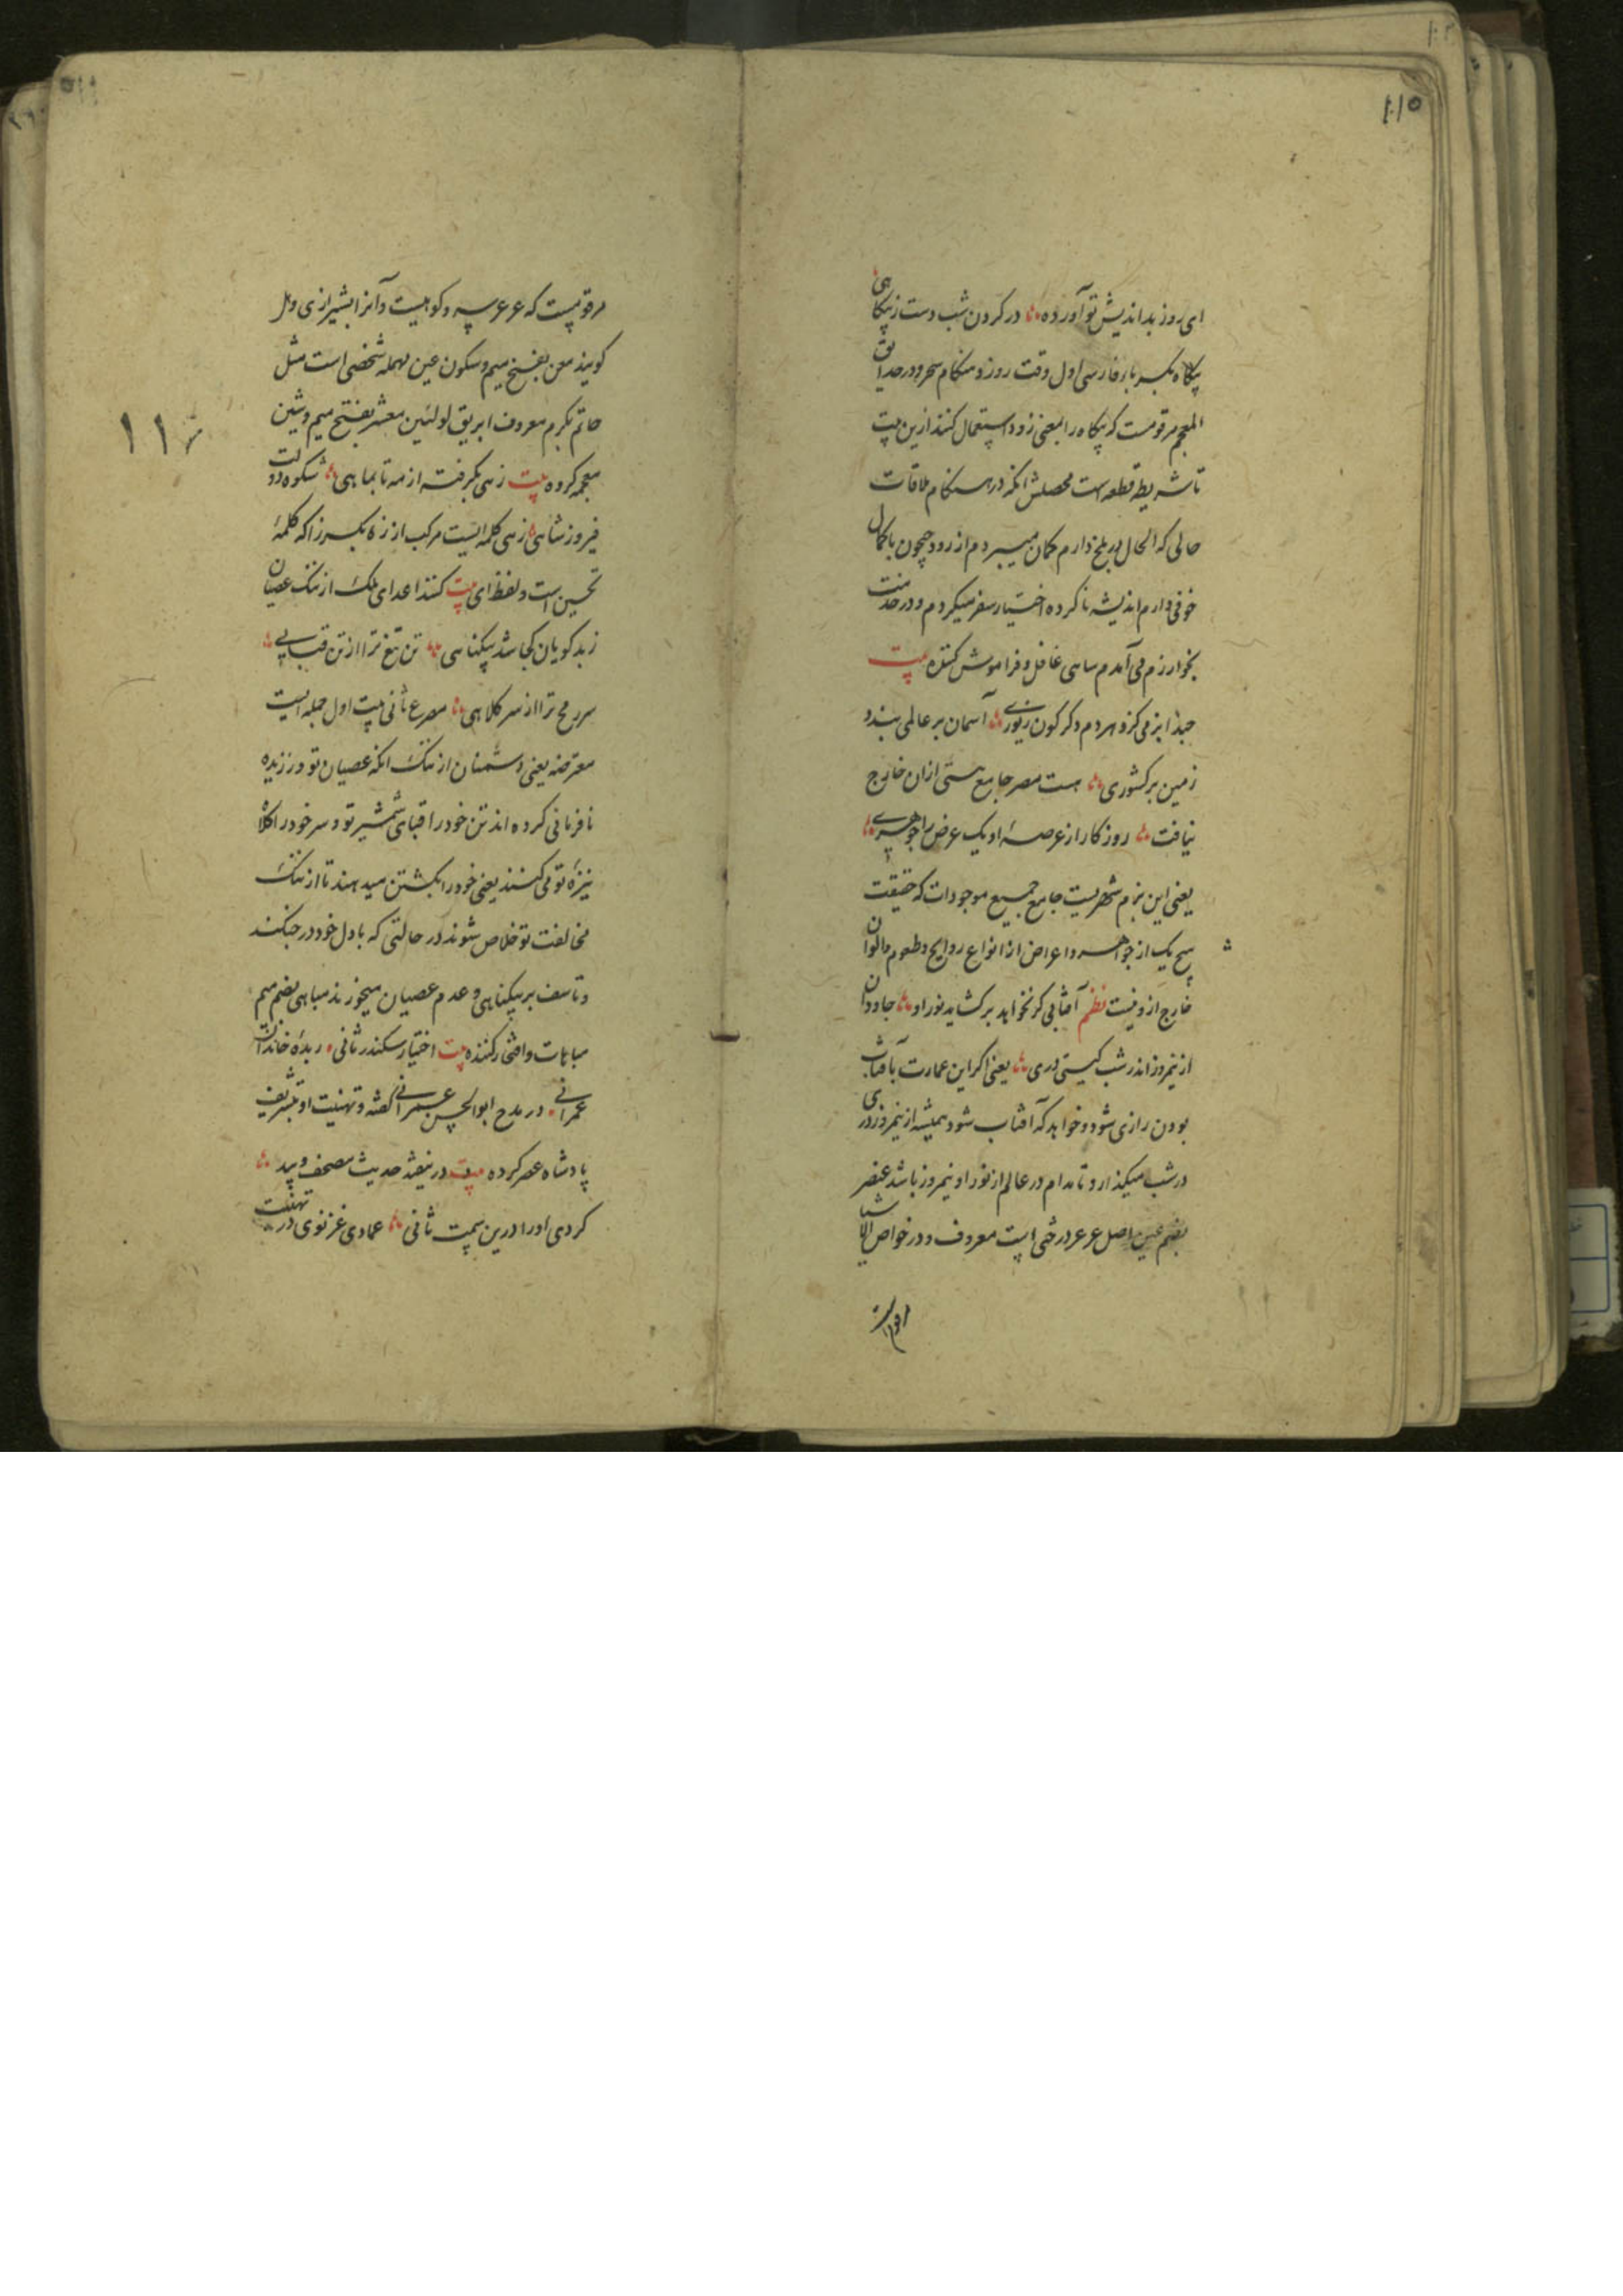 ای روز بداندیش تو آورده در کردن شب دست زپکاهی
پکاه بکسر باء فارسی اول وقت روز و هنکام سحر و در حدایق
المعجم مرقومست که پکاه را بمعنی زود استعمال کنند ازین بیت
تا شریطه قطعه است محصلش انکه در هنکام ملاقات
حالی که الحال در بلخ دارم کمان میبردم از رود جیحون با کمال
خوفی دارم اندیشه ناکرده اختیار سفر میکردم و در خدمت
بخوارزم می آمدم ساهی غافل و فراموش کننده بیت
حبذا بزمی کزو هر دم دکر کون زیوری آسمان بر عالمی بندد
زمین بر کشوری هست مصر جامع هستی ازان خارج
نیافت روزکار از عرصهٔ او یک عرض را جوهری
یعنی این بزم شهریست جامع جمیع موجودات که حقیقت
هیچ یک از جواهر و اعراض از انواع روایح و طعوم و الوان
خارج ازو نیست نظم آفتابی کر نخواهد برکشاید نور او جاودان
از نیمروز اندر شب کیتی دری یعنی اکر این عمارت بآفتاب
بودن راضی شود و خواهد که آفتاب شود همیشه از نیمروز دری
در شب میکذارد تا مدام در عالم از نور او نیمروز باشد عنصر
بضم عین اصل عرعر درختی است معروف و در خواص الاشیا
مرقومست
۱۱۵
مرقومست که عرعر سرو کوهیست و آنرا بشیرازی وهل
کویند معن بفتح میم و سکون عین مهمله شخصی است مثل
حاتم بکرم معروف ابریق لولئین معشر بفتح میم و شین
معجمه کروه بیت زهی بکرفته از مه تا بماهی شکوه دولت
فیروز شاهی زهی کلمه ایست مرکب از زه بکسر زا که کلمهٔ
تحسین است و لفظ ای بیت کنند اعدای ملک از ننک عصیان
ز بدکویان کجا شد پیکناهی تن تیغ ترا از تن قبایی
سر رمح ترا از سر کلاهی مصرع ثانی بیت اول جمله ایست
معترضه یعنی دشمنان از ننک انکه عصیان تو ورزیده
نافرمانی کرده اند تن خود را قبای شمشیر تو و سر خود را کلاه
نیزهٔ تو می کنند یعنی خود را بکشتن میدهند تا از ننک
مخالفت تو خلاص شوند در حالتی که با دل خود در جنکند
و تاسف بر بیکناهی و عدم عصیان میخورند مباهی بضم میم
مباهات و افتخار کننده بیت اختیار سکندر ثانی زبدهٔ خاندان
عمرانی در مدح ابوالحسن عمرانی کفته و تهنیت او بتشریف
پادشاه عصر کرده بیت در نیفتد حدیث مصحف و بند
کردی او را درین سمت ثانی عمادی غزنوی در تهنیت